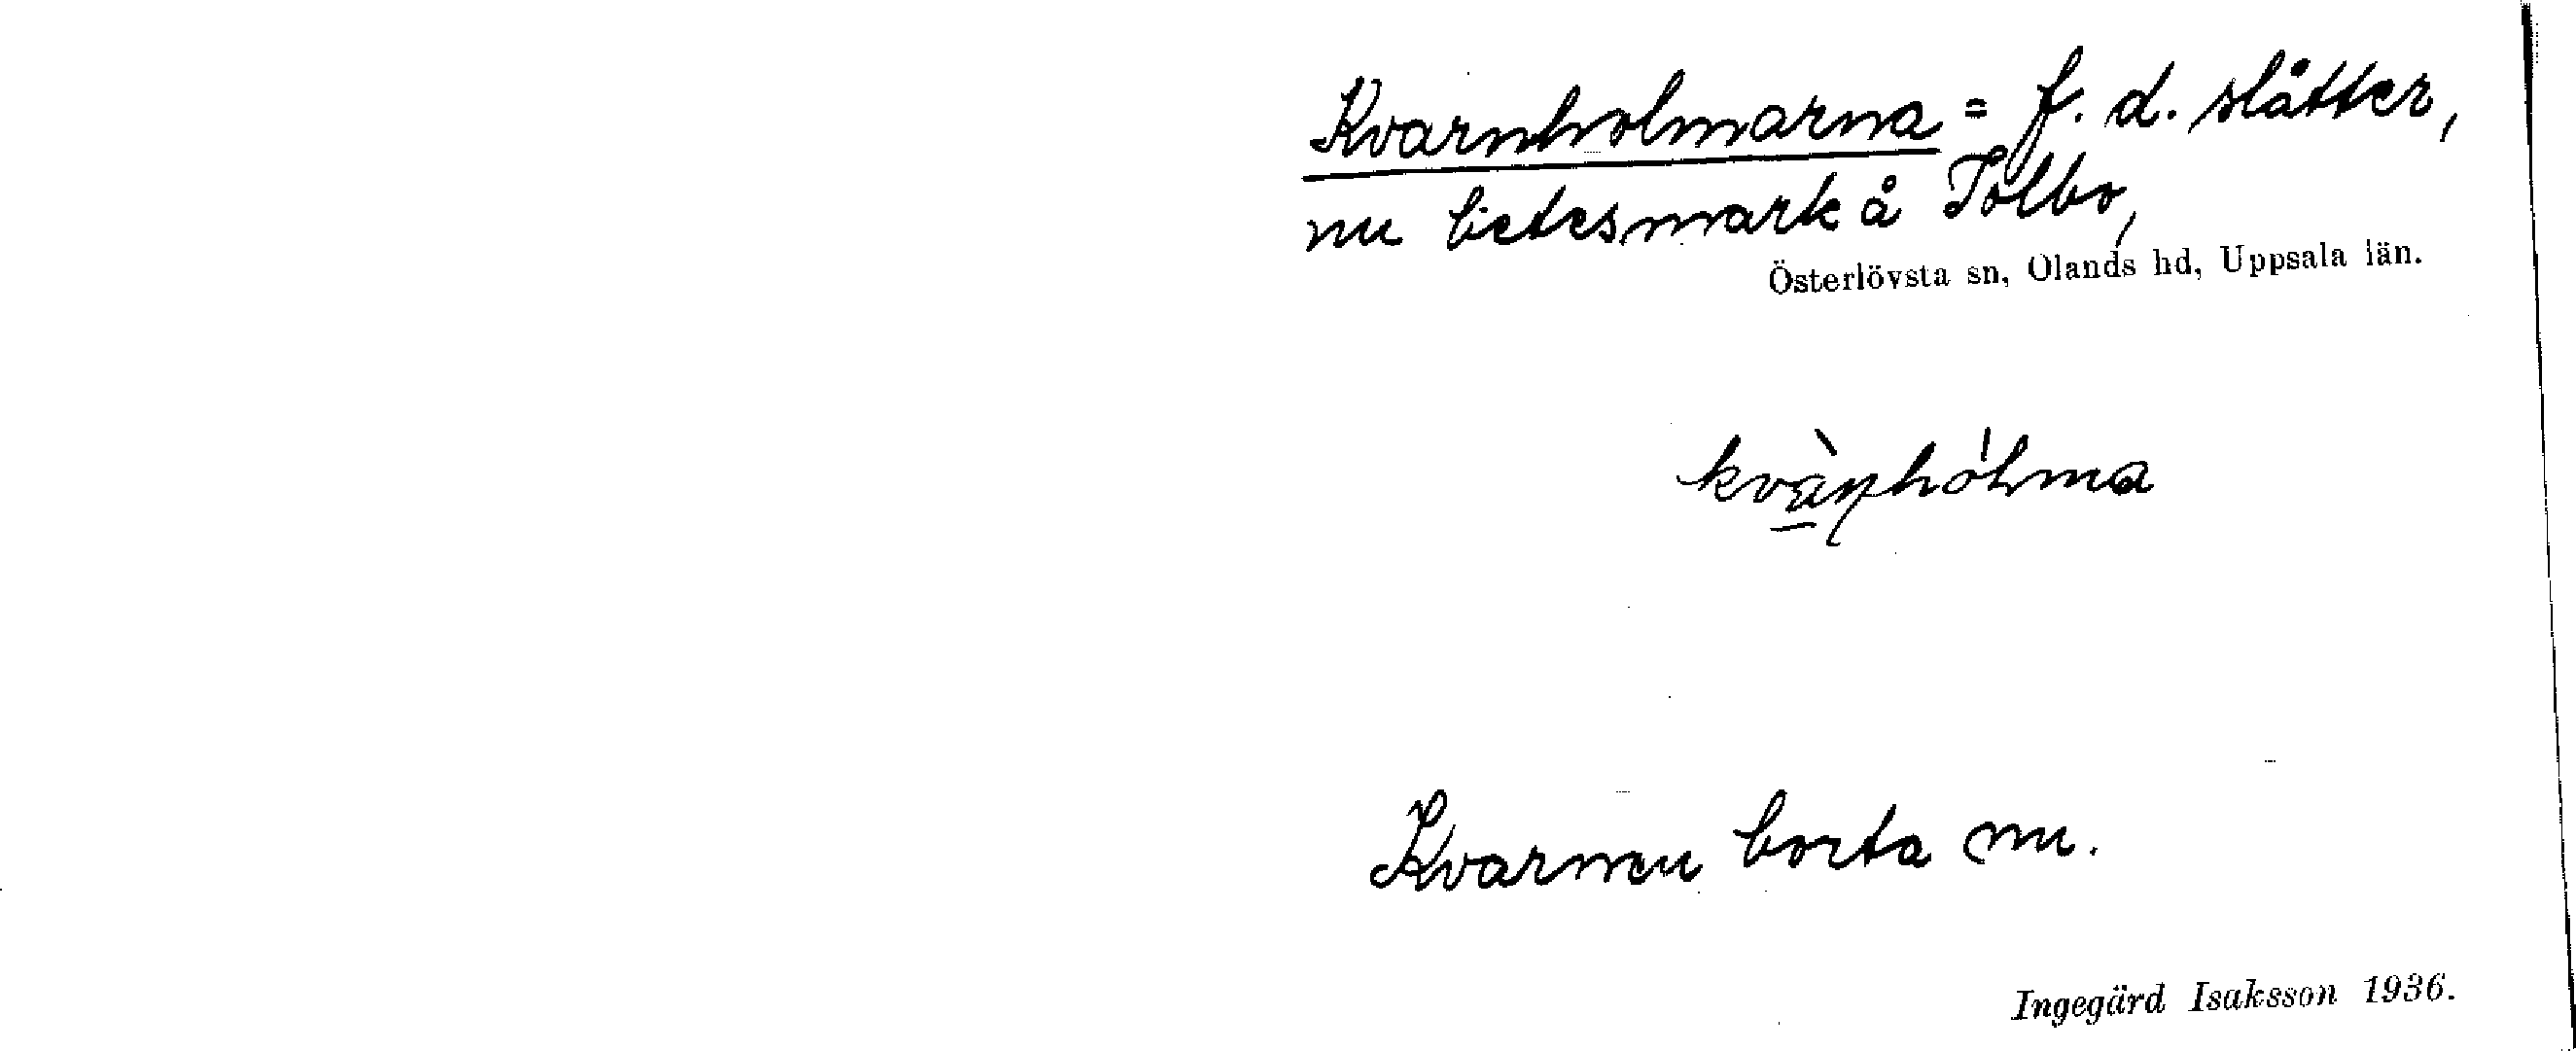 Kvarnholmarna = f. d. slåtter,
nu betesmark å Tolbo,
Österlövsta sn, Olands hd, Uppsala län.
Kvarnen borta nu.
Ingegärd Isaksson 1936.